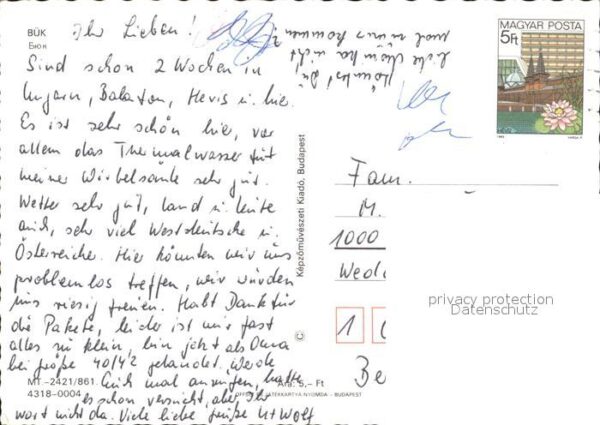 BÜK
Бюк
Ihr Lieben!
Sind schon 2 Wochen in
Ungarn, Balaton, Hevis u. hie.
Es ist sehr schön hier, vor
allem das Thermalwasser tut
meiner Wirbelsäule sehr gut.
Wetter sehr gut, Land u. Leute
auch, sehr viel Westdeutsche u.
Österreicher. Hier könnten wir uns
problemlos treffen, wir würden
uns riesig freuen. Habt Dank für
die Pakete, leider ist mir fast
alles zu klein, bin jetzt als Oma
bei größe 40/42 gelandet. Werde
Euch mal anrufen, hatte
es schon versucht, aber Ihr
wart nicht da. Viele liebe Grüße Ut Wolf
MT.-2421/861.
Ára: 5,- Ft
4318-0004
OFFSET- ÉS JÁTÉKKÁRTYA NYOMDA - BUDAPEST
Könntest Du
nicht
mal zu uns kommen?
© Képzőművészeti Kiadó, Budapest
MAGYAR POSTA
5Ft
Fam.
M.
1000
Wed
1
Be
privacy protection
Datenschutz